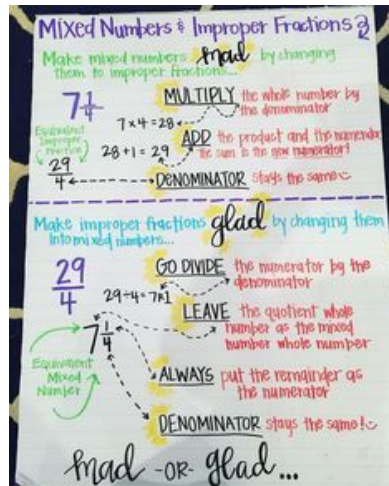 Mixed Numbers & Improper Fractions
Make mixed numbers mad by changing
them to improper fractions...
7 1/4
MULTIPLY the whole number by
the denominator
7x4=28
Equivalent
Improper
Fraction
ADD the product and the numerator
the sum is the new numerator!
28+1=29
29/4
DENOMINATOR stays the same
Make improper fractions glad by changing them
into mixed numbers...
29/4
GO DIVIDE the numerator by the
denominator
29÷4=7R1
LEAVE the quotient whole
number as the mixed
number whole number
7 1/4
Equivalent
Mixed
Number
ALWAYS put the remainder as
the numerator
DENOMINATOR stays the same!
mad -OR- glad...